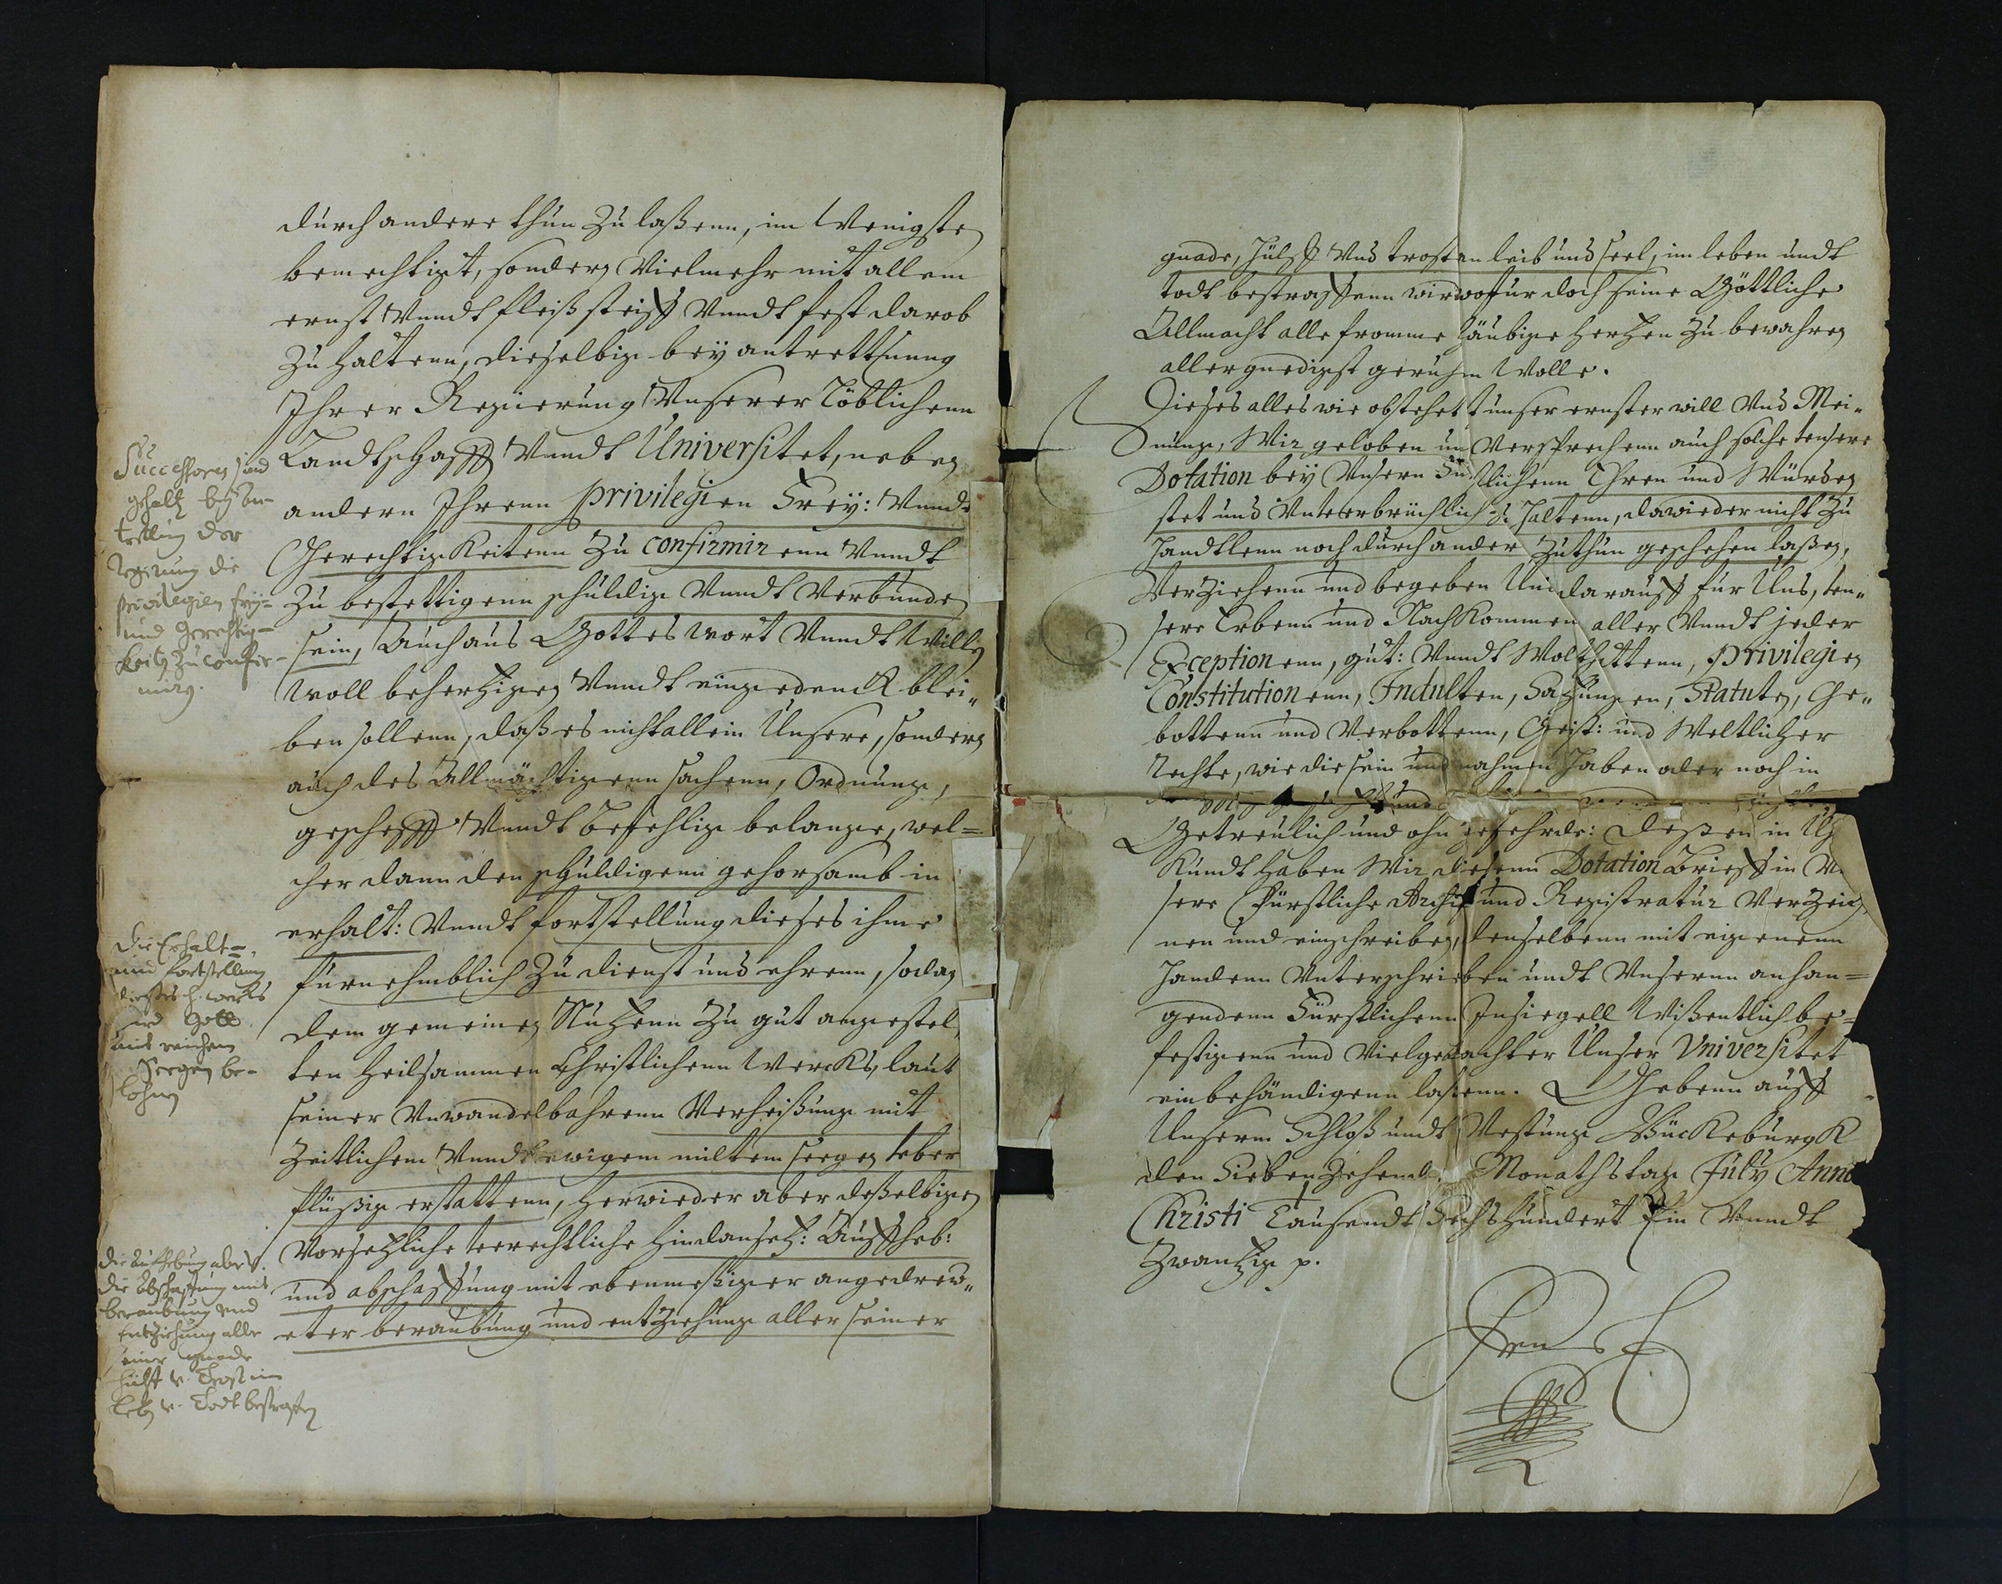 durch andere thun Zu laßenn, im Wenigsten
bemechtigt, sondern Vielmehr mit allem
ernst Vnndt fleiß steiff Vnndt fest darob
Zu haltenn, dieselbige bey antrettunng
Ihrer Regierung Vnserer Löblichenn
Landtschafft Vnndt Universitet, neben
andern Ihrenn privilegien Frey: Vnndt
GerechtigKeitenn Zu confirmirenn Vnndt
Zu bestettigenn schuldig Vnndt Verbunden
sein, Auch aus Gottes wort Vnndt Willen
Woll behertzigen Vnndt eingedenck blei„
ben sollenn, daß es nicht allein Unsere, sondern
auch des Allmächtigenn sachenn, Ordnung,
geschefft Vnndt Befehlig belange, wel=
cher dann den schuldigenn gehorsamb in
erhalt: Vnndt fortstellung dieses ihme
fürnehmblich Zu dienst und ehrenn, sodan
dem gemeinen Nutzenn Zu gut angestel„
ten Heilsammen Christlichenn WercKs, laut
seiner Vnwandelbahrenn Verheißung mit
Zeitlichem Vnndt ewigem miltem seegen teber
flüßig erstattenn, herwieder aber deßelbigen
Vorsetzliche teerechtliche hindansetz: Auffheb:
und abschaffung mit ebenmeßiger angedrew„
eter beraubung und entziehung aller seiner
Successoren sind
gehalt bey An-
trettung der
Regirung die
privilegien frey-
und Gerechtig-
keiten zu confir-
miren.
die Erhalt=
und fortstellung
dieses h. wercks
wird Gott
mit reichem
Seegen be-
lohnen
die Aufhebung aber v.
die Abschaffung mit
beraubung und
Entziehung aller
seiner gnade
hülff v. Trost im
Leben v. Todt bestraffen
gnade, hülff Vnd trost an leib und seel, im leben undt
todt bestraffenn wird wofür doch seine Göttliche
Allmacht alle fromme gläubige Hertzen Zu bewahren
allergnedigst geruhen Wolle.
Dieses alles wie obstehet ist unser ernster will Vnd Mei„
nung, Wir geloben und Versprechenn auch solche tensere
Dotation bey Vnsern Fürstlichenn Ehren und Würden
stet und Vnterbrüchlich Zu haltenn, dawieder nicht Zu
handtlenn noch durch ander Zuthun geschehen laßen,
Verziehenn und begeben Uns darauff für Uns, ten„
sere Erbenn und NachKommen aller Vnndt jeder
Exceptionenn, gut: Vnndt Wolthattenn, privilegien
Constitutionenn, Indulten, Satzungen, Statuten, Ge„
bottenn und Verbottenn, Geist: und Weltlicher
Rechte, wie die sein und nahmen haben oder noch in
Getreulich und ohn gefehrde: Deßen in
Kundt haben Wir diesenn Dotation Brieff in
sere Fürstliche Archif und Registratur Verzeich
nen und einschreiben, denselbenn mit eigenenn
Handenn Vnterschrieben undt Vnserenn anhan=
gendenn Fürstlichenn Insiegell Wißentlich be=
festigenn und Vielgedachter Unser Vniversitet
einbehändigenn laßenn. Gebenn auff
Unserm Schloß undt Vestung BücKeburgK
den SiebenZehend Monathstag July Anno
Christi Tausendt Sechshundert Ein Vnndt
Zwantzig p.